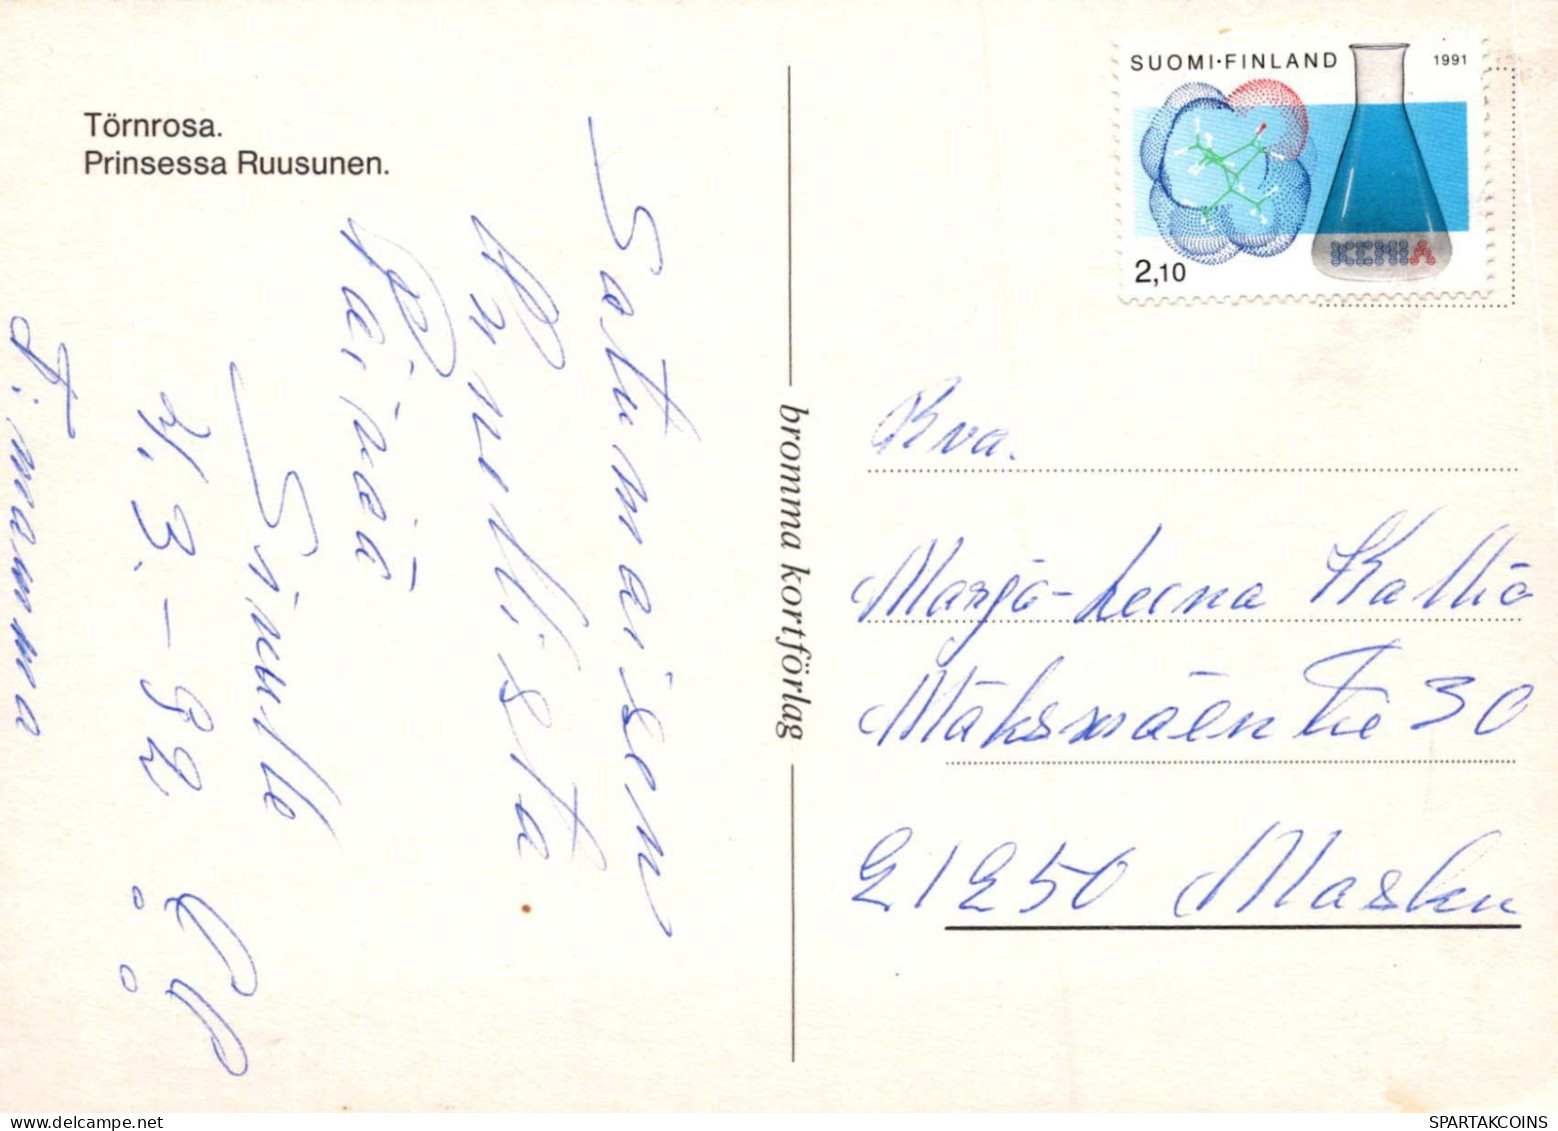 Törnrosa.
Prinsessa Ruusunen.
Satumaisen
Runollista
Päivää
Sinulle
4.3.-92
T: mamma
bromma kortförlag
SUOMI·FINLAND 1991
KEMIA
2,10
Rva.
Marja-Leena Kallio
Mäksmäentie 30
21250 Masku
SPARTAKCOINS